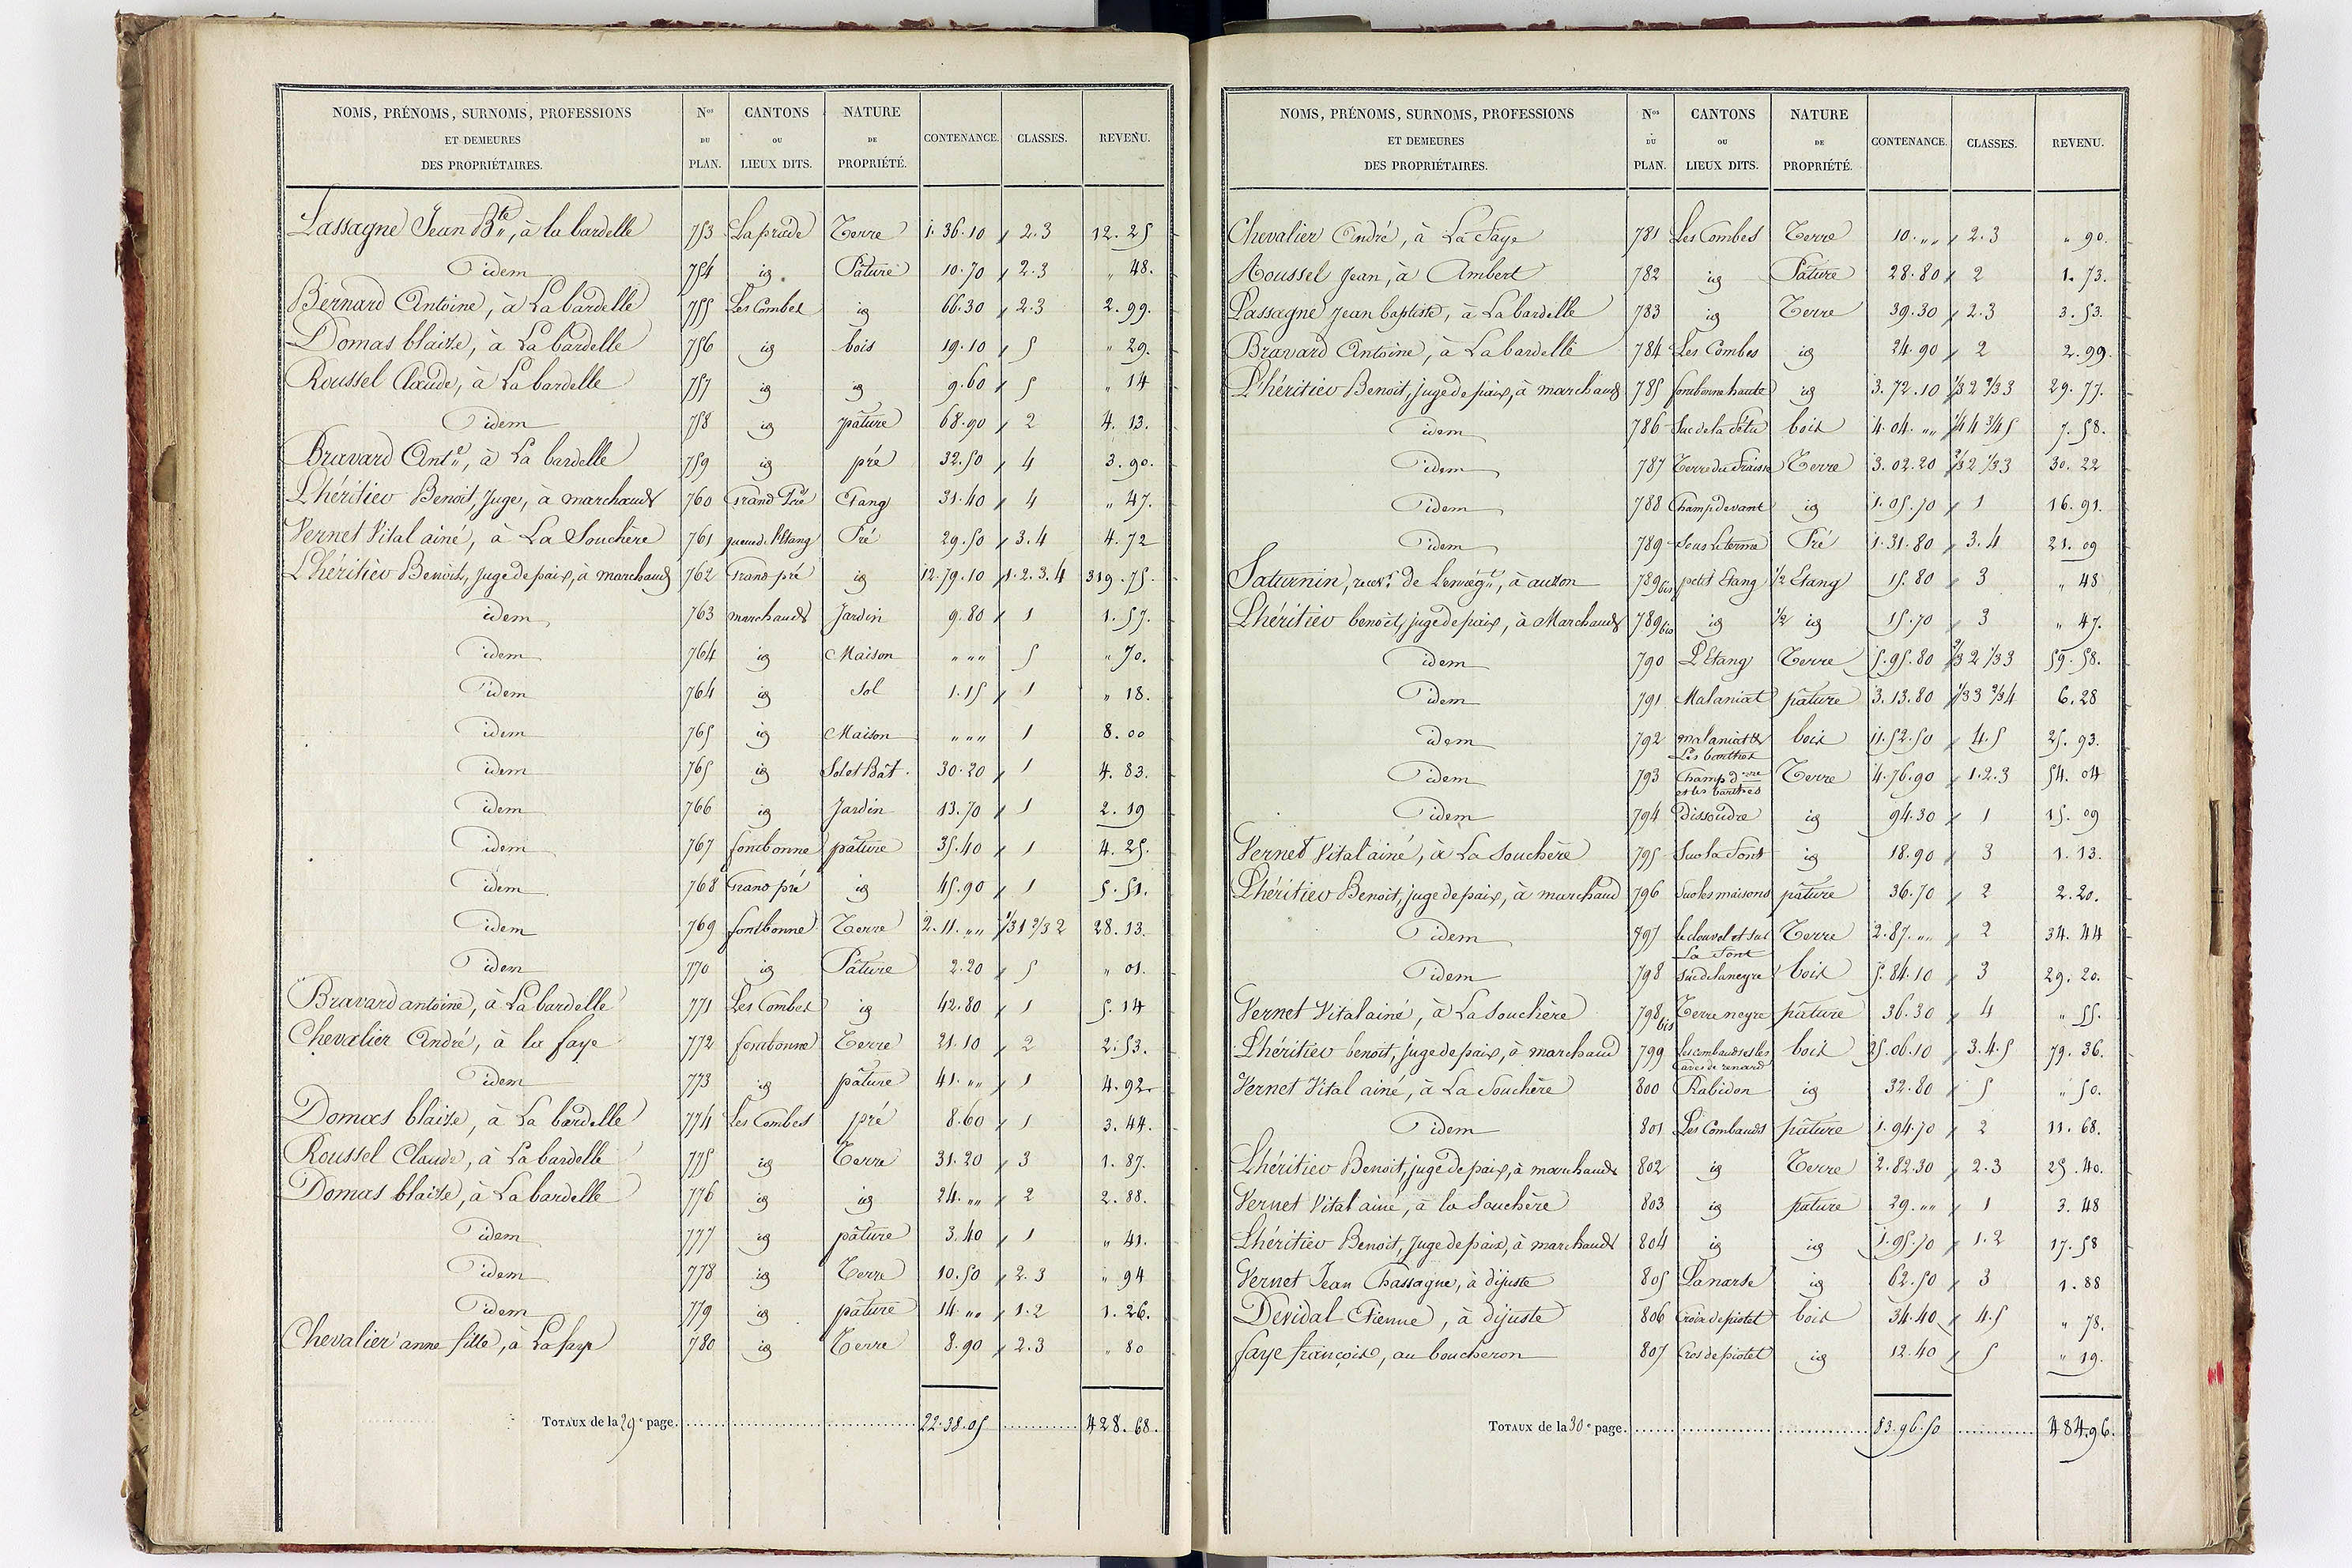 NOMS, PRÉNOMS, SURNOMS, PROFESSIONS ET DEMEURES DES PROPRIÉTAIRES. Nos DU PLAN. CANTONS OU LIEUX DITS. NATURE DE PROPRIÉTÉ. CONTENANCE. CLASSES. REVENU.
Lassagne Jean Bte, à la bardelle 753 La prade Terre 1.36.10 2.3 12.25
idem 754 id Pature 10.70 2.3 " 48.
Bernard Antoine, à La bardelle 755 Les Combes id 66.30 2.3 2.99.
Domas blaize, à La bardelle 756 id bois 19.10 5 " 29.
Roussel Claude, à La bardelle 757 id id 9.60 5 " 14
idem 758 id pâture 68.90 2 4.13.
Bravard Ante, à La bardelle 759 id pré 32.50 4 3.90.
Lhéritier Benoit, Juge, à marchauds 760 Grand Pré Etang 31.40 4 " 47.
Vernet Vital ainé, à La Souchère 761 queue de l'Etang Pré 29.50 3.4 4.72
Lhéritier Benoit, juge de paix, à marchauds 762 Grand pré id 12.79.10 1.2.3.4 319.75.
idem 763 marchauds Jardin 9.80 1 1.57.
idem 764 id Maison " " " 5 " 70.
idem 764 id Sol 1.15 1 " 18.
idem 765 id Maison " " " 1 8.00
idem 765 id Sol et Bât. 30.20 1 4.83.
idem 766 id Jardin 13.70 1 2.19
idem 767 fontbonne pâture 35.40 1 4.25.
idem 768 Grand pré id 45.90 1 5.51.
idem 769 fontbonne Terre 2.11. " " 1/3 1 2/3 2 28.13.
idem 770 id Pâture 2.20 5 " 01.
Bravard antoine, à La bardelle 771 Les Combes id 42.80 1 5.14
Chevalier André, à la faye 772 fontbonne Terre 21.10 2 2.53.
idem 773 id pâture 41. " " 1 4.92
Domas blaize, à La bardelle 774 Les Combes pré 8.60 1 3.44.
Roussel Claude, à La bardelle 775 id Terre 31.20 3 1.87.
Domas blaize, à La bardelle 776 id id 24. " " 2 2.88.
idem 777 id pâture 3.40 1 " 41.
idem 778 id Terre 10.50 2.3 " 94
idem 779 id pâture 14. " " 1.2 1.26.
Chevalier anne fille, à La faye 780 id Terre 8.90 2.3 " 80
TOTAUX de la 29e page. 22.38.05 428.68.
NOMS, PRÉNOMS, SURNOMS, PROFESSIONS ET DEMEURES DES PROPRIÉTAIRES. Nos DU PLAN. CANTONS OU LIEUX DITS. NATURE DE PROPRIÉTÉ. CONTENANCE. CLASSES. REVENU.
Chevalier André, à La Faye 781 Les Combes Terre 10. " " 2.3 " 90.
Roussel Jean, à Ambert 782 id Pâture 28.80 2 1.73.
Lassagne Jean baptiste, à La bardelle 783 id Terre 39.30 2.3 3.53.
Bravard Antoine, à La bardelle 784 Les Combes id 24.90 2 2.99.
Lhéritier Benoit, juge de paix, à marchauds 785 fontbonne haute id 3.72.10 1/3 2 2/3 3 29.77.
idem 786 Suc de la Fétu bois 4.04. " " 1/4 4 3/4 5 7.58.
idem 787 Terre du Fraisse Terre 3.02.20 2/3 2 1/3 3 30.22
idem 788 Champ devant id 1.05.70 1 16.91.
idem 789 Sous Le terme Pré 1.31.80 3.4 21.09
Saturnin, recevr de L'enregt, à auzon 789 bis petit Etang 1/2 Etang 15.80 3 " 48
Lhéritier benoit, juge de paix, à Marchauds 789 bis id 1/2 id 15.70 3 " 47.
idem 790 L'Etang Terre 5.95.80 2/3 2 1/3 3 59.58.
idem 791 Malaniat pâture 3.13.80 1/3 3 2/3 4 6.28
idem 792 malaniat et Les barthes bois 11.52.50 4.5 25.93.
idem 793 Champ drre et les barthes Terre 4.76.90 1.2.3 54.04
idem 794 Dissoudre id 94.30 1 15.09
Vernet Vital ainé, à La Souchère 795 Sur la Font id 18.90 3 1.13.
Lhéritier Benoit, juge de paix, à marchaud 796 Sur les maisons pâture 36.70 2 2.20.
idem 797 le clouvel et sur La Font Terre 2.87. " " 2 34.44
idem 798 Suc de laneyre bois 5.84.10 3 29.20.
Vernet Vital ainé, à La Souchère 798 bis Terre neyre pâture 36.30 4 " 55.
Lhéritier benoit, juge de paix, à marchaud 799 Les combauds et les caves de renard bois 25.06.10 3.4.5 79.36.
Vernet Vital ainé, à La Souchère 800 Rabidon id 32.80 5 " 50.
idem 801 Les Combauds pâture 1.94.70 2 11.68.
Lhéritier Benoit, juge de paix, à marchauds 802 id Terre 2.82.30 2.3 25.40.
Vernet Vital ainé, à la Souchère 803 id pâture 29. " " 1 3.48
Lhéritier Benoit, Juge de paix, à marchauds 804 id id 1.95.70 1.2 17.58
Vernet Jean Chassagne, à dijuste 805 La narse id 62.50 3 1.88
Devidal Etienne, à dijuste 806 Croix de piotet bois 34.40 4.5 " 78.
faye françois, au boucheron 807 Cros de piotet id 12.40 5 " 19.
TOTAUX de la 30e page. 83.96.50 484.96.